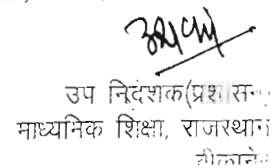 उप निदेशक(प्रशासन
माध्यमिक शिक्षा, राजस्थान